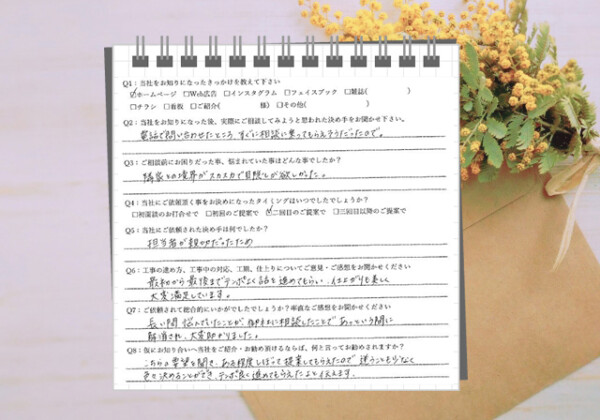 Q1：当社をお知りになったきっかけを教えて下さい
☑ホームページ □Web広告 □インスタグラム □フェイスブック □雑誌( )
□チラシ □看板 □ご紹介( 様) □その他( )
Q2：当社をお知りになった後、実際にご相談してみようと思われた決め手をお聞かせ下さい。
電話で問い合わせたところ、すぐに相談に乗ってもらえそうだったので。
Q3：ご相談前にお困りだった事、悩まれていた事はどんな事でしたか？
隣家との境界がスカスカで目隠しが欲しかった。
Q4：当社にご依頼頂く事をお決めになったタイミングはいつでしたでしょうか？
□初面談のお打合せで □初回のご提案で ☑二回目のご提案で □三回目以降のご提案で
Q5：当社にご依頼された決め手は何でしたか？
担当者が親切だったため
Q6：工事の進め方、工事中の対応、工期、仕上りについてご意見・ご感想をお聞かせください
最初から最後までテンポよく話を進めてもらい、仕上がりも美しく
大変満足しています。
Q7：ご依頼されて総合的にいかがでしたでしょうか？率直なご感想をお聞かせください
長い間悩んでいたことが、御社に相談したことであっという間に
解消され、大変助かりました。
Q8：仮にお知り合いへ当社をご紹介・お勧め頂けるならば、何と言ってお勧めされますか？
こちらの要望を聞き、ある程度しぼって提案してもらえたので、迷うことも少なく
色々決めることができ、テンポ良く進めてもらえたよと伝えます。